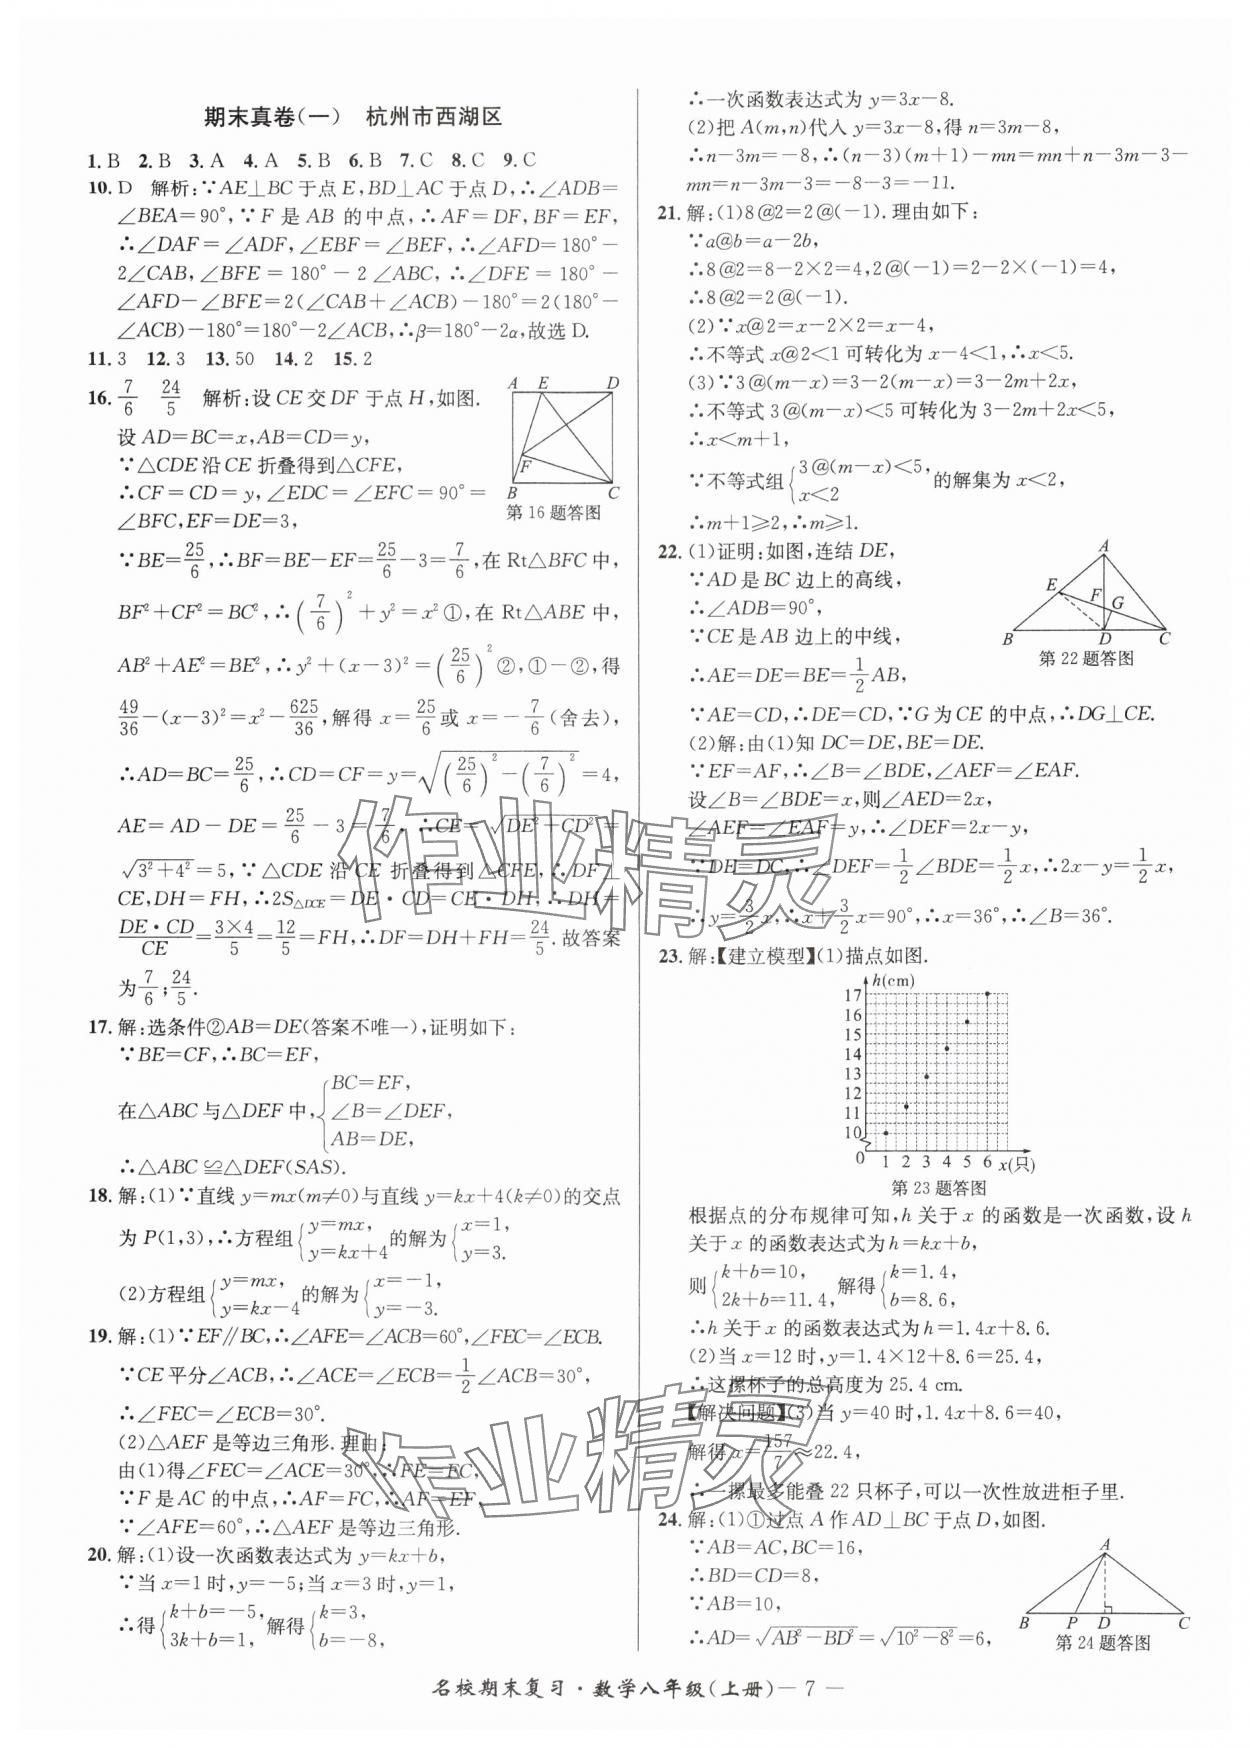 期末真卷(一) 杭州市西湖区
1.B 2.B 3.A 4.A 5.B 6.B 7.C 8.C 9.C
10.D 解析:∵AE⊥BC于点E,BD⊥AC于点D,∴∠ADB=
∠BEA=90°,∵F 是 AB 的中点,∴AF=DF,BF=EF,
∴∠DAF=∠ADF,∠EBF=∠BEF,∴∠AFD=180°-
2∠CAB,∠BFE=180°-2∠ABC,∴∠DFE=180°-
∠AFD-∠BFE=2(∠CAB+∠ACB)-180°=2(180°-
∠ACB)-180°=180°-2∠ACB,∴β=180°-2α,故选D.
11.3 12.3 13.50 14.2 15.2
16. 7/6 24/5 解析:设CE交DF于点H,如图.
设AD=BC=x,AB=CD=y,
∵△CDE沿CE折叠得到△CFE,
∴CF=CD=y,∠EDC=∠EFC=90°=
∠BFC,EF=DE=3,
A E D
F
B C
第16题答图
∵BE=25/6,∴BF=BE-EF=25/6-3=7/6,在Rt△BFC中,
BF²+CF²=BC²,∴(7/6)²+y²=x²①,在Rt△ABE中,
AB²+AE²=BE²,∴y²+(x-3)²=(25/6)²②,①-②,得
49/36-(x-3)²=x²-625/36,解得x=25/6或x=-7/6(舍去),
∴AD=BC=25/6,∴CD=CF=y=√((25/6)²-(7/6)²)=4,
AE=AD-DE=25/6-3=7/6,∴CE=√(DE²+CD²)=
√(3²+4²)=5,∵△CDE沿CE折叠得到△CFE,∴DF⊥
CE,DH=FH,∴2S△DCE=DE·CD=CE·DH,∴DH=
DE·CD/CE=3×4/5=12/5=FH,∴DF=DH+FH=24/5.故答案
为7/6;24/5.
17.解:选条件②AB=DE(答案不唯一),证明如下:
∵BE=CF,∴BC=EF,
在△ABC与△DEF中,{BC=EF,
∠B=∠DEF,
AB=DE,
∴△ABC≌△DEF(SAS).
18.解:(1)∵直线y=mx(m≠0)与直线y=kx+4(k≠0)的交点
为P(1,3),∴方程组{y=mx, y=kx+4的解为{x=1, y=3.
(2)方程组{y=mx, y=kx-4的解为{x=-1, y=-3.
19.解:(1)∵EF∥BC,∴∠AFE=∠ACB=60°,∠FEC=∠ECB.
∵CE平分∠ACB,∴∠ACE=∠ECB=1/2∠ACB=30°,
∴∠FEC=∠ECB=30°.
(2)△AEF是等边三角形.理由:
由(1)得∠FEC=∠ACE=30°,∴FE=FC,
∵F是AC的中点,∴AF=FC,∴AF=EF,
∵∠AFE=60°,∴△AEF是等边三角形.
20.解:(1)设一次函数表达式为y=kx+b,
∵当x=1时,y=-5;当x=3时,y=1,
∴得{k+b=-5, 3k+b=1,解得{k=3, b=-8,
∴一次函数表达式为y=3x-8.
(2)把A(m,n)代入y=3x-8,得n=3m-8,
∴n-3m=-8,∴(n-3)(m+1)-mn=mn+n-3m-3-
mn=n-3m-3=-8-3=-11.
21.解:(1)8@2=2@(-1).理由如下:
∵a@b=a-2b,
∴8@2=8-2×2=4,2@(-1)=2-2×(-1)=4,
∴8@2=2@(-1).
(2)∵x@2=x-2×2=x-4,
∴不等式x@2<1可转化为x-4<1,∴x<5.
(3)∵3@(m-x)=3-2(m-x)=3-2m+2x,
∴不等式3@(m-x)<5可转化为3-2m+2x<5,
∴x<m+1,
∵不等式组{3@(m-x)<5, x<2的解集为x<2,
∴m+1≥2,∴m≥1.
22.(1)证明:如图,连结DE,
∵AD是BC边上的高线,
∴∠ADB=90°,
∵CE是AB边上的中线,
∴AE=DE=BE=1/2AB,
A
E F G
B D C
第22题答图
∵AE=CD,∴DE=CD,∵G为CE的中点,∴DG⊥CE.
(2)解:由(1)知DC=DE,BE=DE.
∵EF=AF,∴∠B=∠BDE,∠AEF=∠EAF.
设∠B=∠BDE=x,则∠AED=2x,
∠AEF=∠EAF=y,∴∠DEF=2x-y,
∵DE=DC,∴∠DEF=1/2∠BDE=1/2x,∴2x-y=1/2x,
∴y=3/2x,∴x+3/2x=90°,∴x=36°,∴∠B=36°.
23.解:【建立模型】(1)描点如图.
h(cm)
17
16
15
14
13
12
11
10
0 1 2 3 4 5 6 x(只)
第23题答图
根据点的分布规律可知,h关于x的函数是一次函数,设h
关于x的函数表达式为h=kx+b,
则{k+b=10, 2k+b=11.4,解得{k=1.4, b=8.6,
∴h关于x的函数表达式为h=1.4x+8.6.
(2)当x=12时,y=1.4×12+8.6=25.4,
∴这摞杯子的总高度为25.4 cm.
【解决问题】(3)当y=40时,1.4x+8.6=40,
解得x=157/7≈22.4,
∴一摞最多能叠22只杯子,可以一次性放进柜子里.
24.解:(1)①过点A作AD⊥BC于点D,如图.
∵AB=AC,BC=16,
∴BD=CD=8,
∵AB=10,
∴AD=√(AB²-BD²)=√(10²-8²)=6,
A
B P D C
第24题答图
作业精灵
作业精灵
名校期末复习·数学八年级(上册)—7—